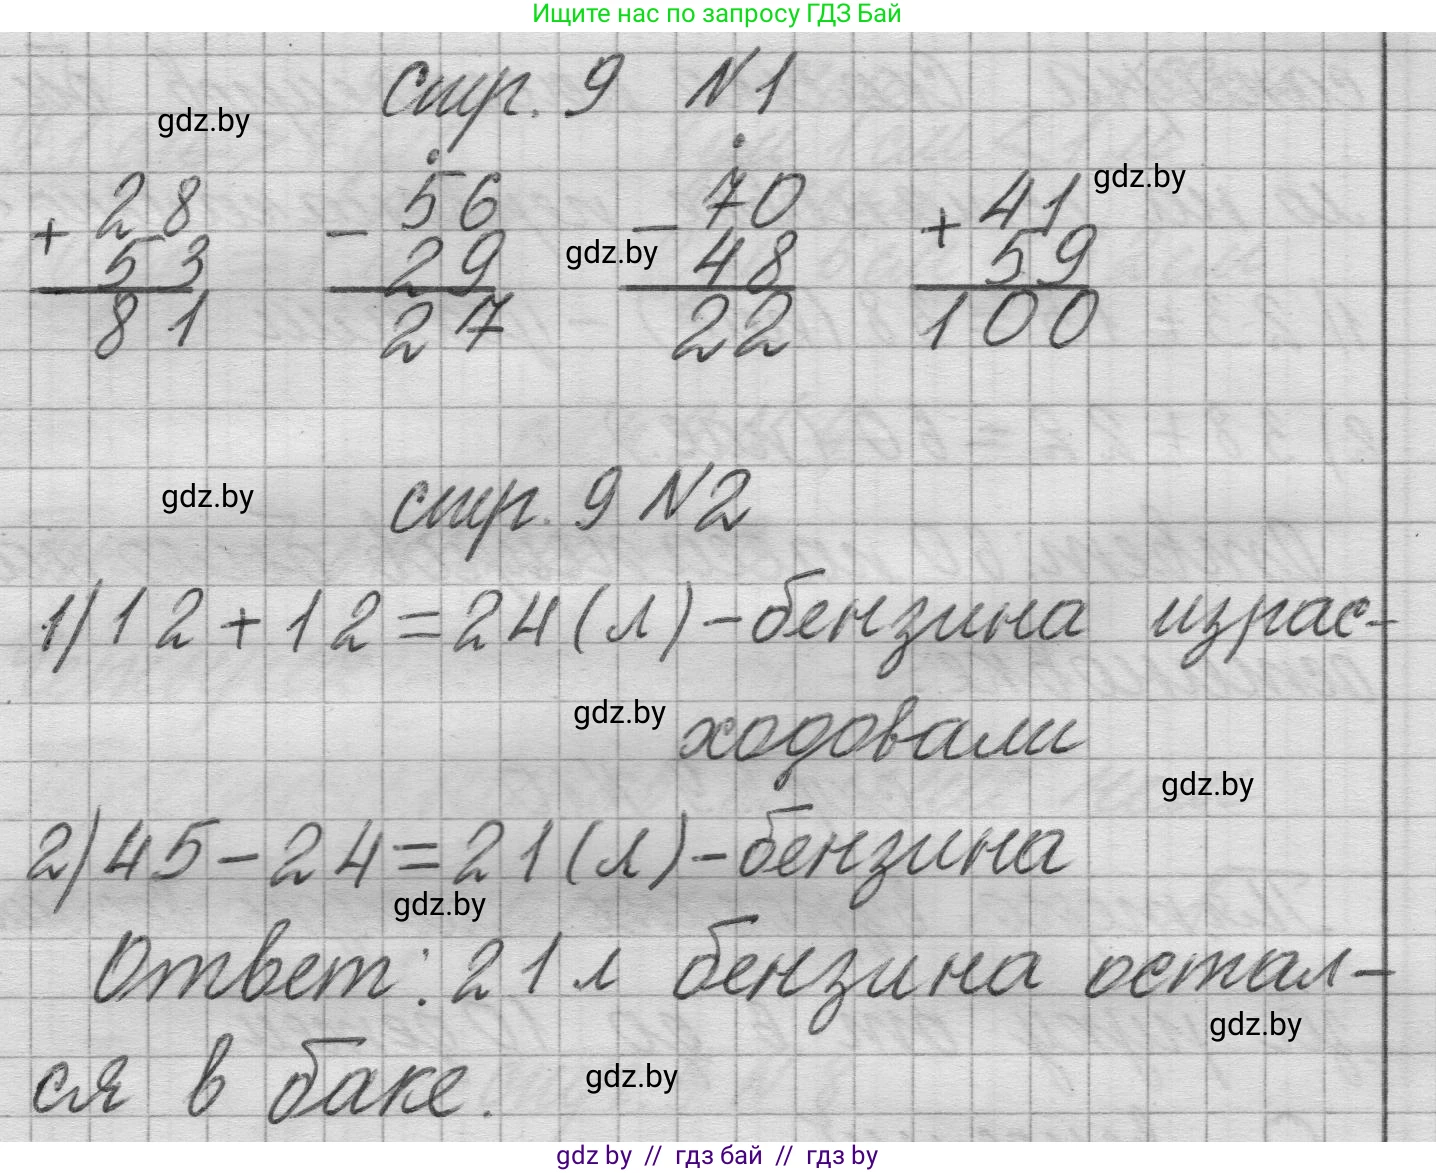 Ищите нас по запросу ГДЗ Бай
стр. 9 №1
gdz.by
+ 28 53 81
− 56 29 27
− 70 48 22
+ 41 59 100
gdz.by
gdz.by
стр. 9 №2
gdz.by
1) 12 + 12 = 24 (л) - бензина израс-
ходовали
gdz.by
gdz.by
2) 45 - 24 = 21 (л) - бензина
gdz.by
Ответ: 21 л бензина остал-
gdz.by
ся в баке.
gdz.by
gdz by // гдз бай // гдз by